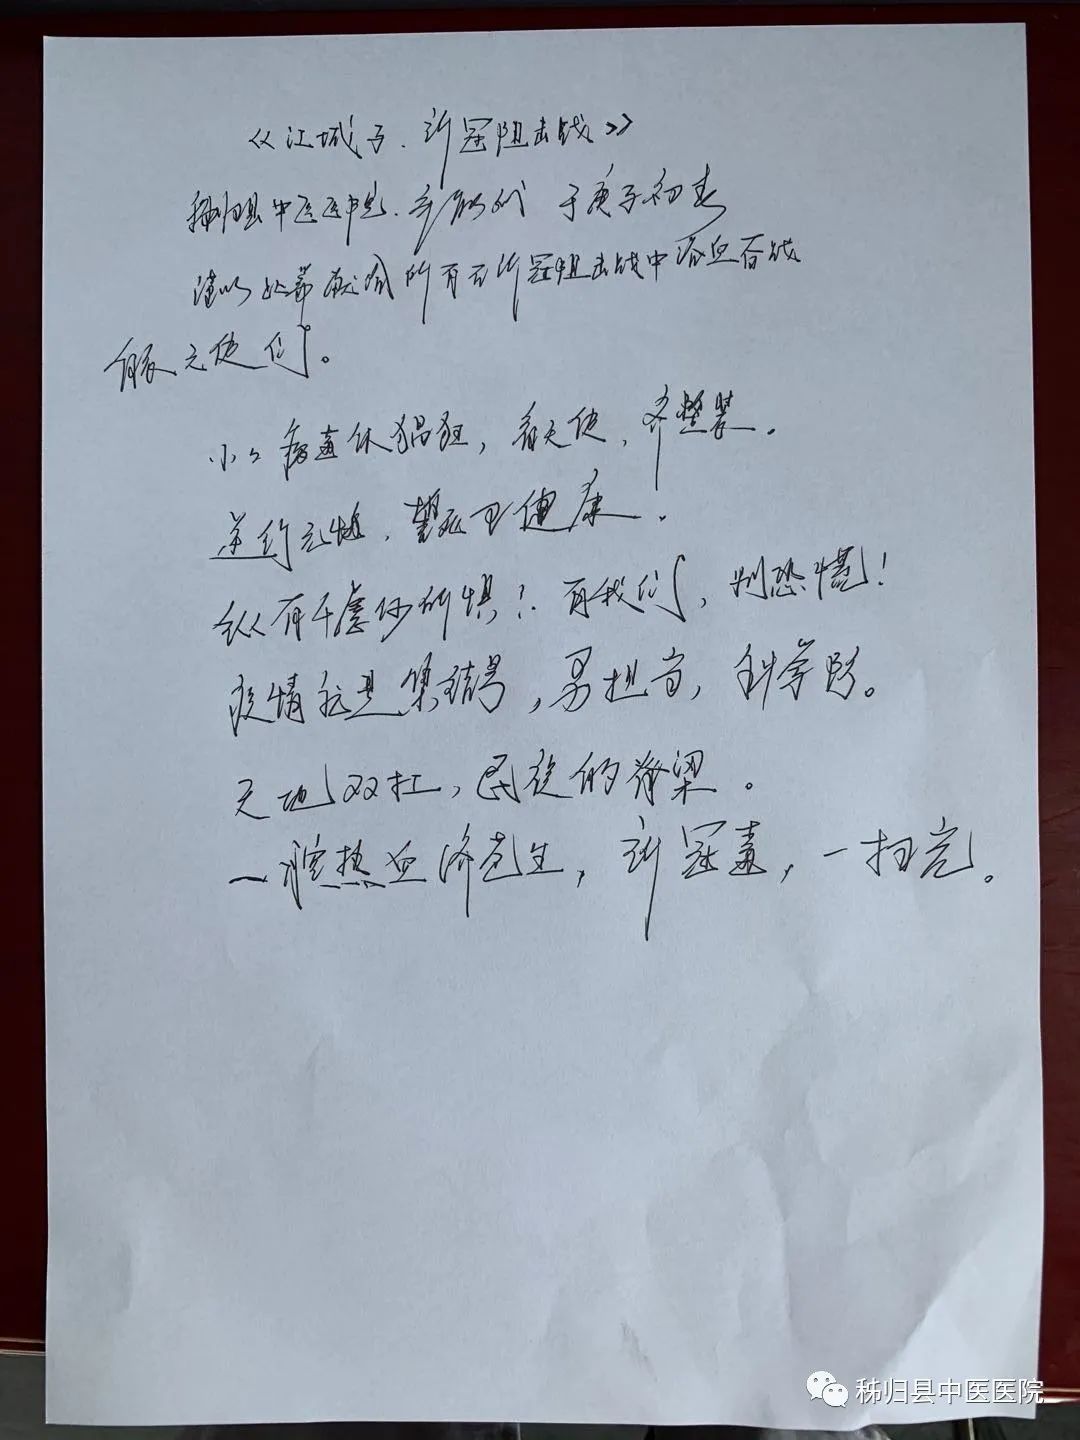 《江城子.新冠阻击战》
秭归县中医医院. 于庚子初春
谨以此篇献给所有在新冠阻击战中浴血奋战
的白衣天使们。
小小病毒休猖狂，看天使，齐整装。
逆行无惧，誓死卫健康.
纵有千虑何所惧？有我们，别恐慌！
疫情就是集结号，勇担当，科学防。
天地双扛，民族的脊梁。
一腔热血济苍生，新冠毒，一扫光。
秭归县中医医院